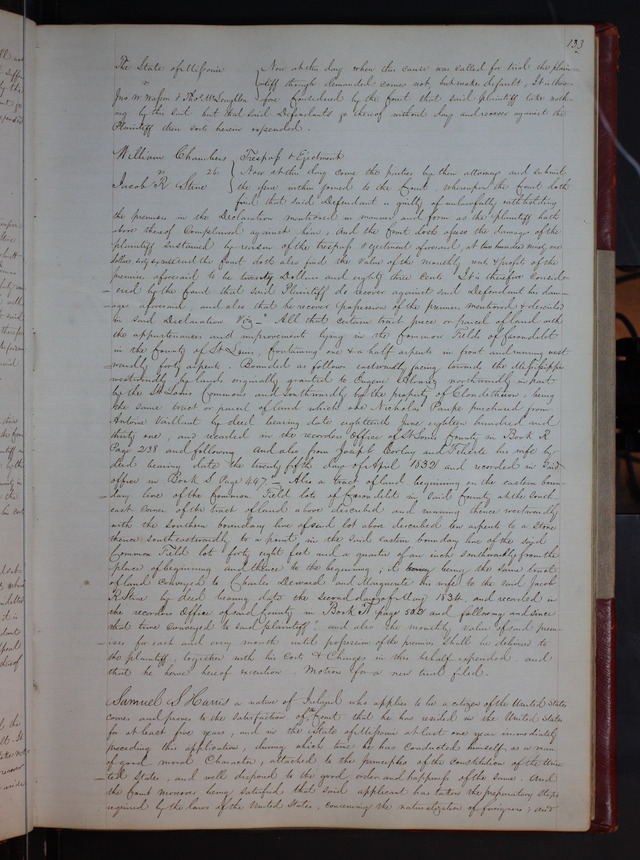 133
The State of Missouri Now at this day when this cause was called for trial the plain-
vs tiff though demanded comes not, but makes default, It is there-
Jno W Wafson & Thos McLaughlin fore Considered by the Court that said plaintiff take noth-
ing by this suit but that said Defendants go thereof without day and recover against the
Plaintiff their costs herein expended.
William Chambers Trespass & Ejectment
vs 26 Now at this day come the parties by their attorneys and submit
Jacob R Stine the issue within joined to the Court, whereupon the Court doth
find that said Defendant is guilty of unlawfully withholding
the premises in the Declaration mentioned in manner and form as the plaintiff hath
above thereof Complained against him, And the Court doth assess the damages of the
plaintiff sustained by reason of the trespass & ejectment aforesaid, at two hundred ninety one
dollars sixty six cents and the Court doth also find the value of the monthly rents & profits of the
premises aforesaid to be twenty Dollars and eighty three Cents It is therefore Consid-
ered by the Court that said Plaintiff do recover against said Defendant his dam-
ages aforesaid, and also that he recover possession of the premises mentioned & described
in said Declaration Viz - "All that certain tract piece or parcel of land with
the appurtenances and improvements lying in the Common Fields of Carondelet
in the County of St Louis, Containing one & a half arpents in front and running west
wardly forty arpents. Bounded as follows eastwardly facing towards the Mississippi
westwardly by lands originally granted to Eugene Alvarez northwardly in part
by the St Louis Commons and Southwardly by the property of Clondethiren, being
the same tract or parcel of land which one Nicholas Paupe purchased from
Antoine Vaillant by deed bearing date eighteenth June eighteen hundred and
thirty one, and recorded in the recorders Office of St Louis County in Book R
Page 238 and following And also from Joseph Corlay and Felicite his wife by
deed bearing date the twenty fifth day of April 1832 and recorded in said
office in Book S Page 497. - Also a tract of land beginning on the eastern boun-
dary line of the Common Field lots of Carondelet in said County at the South
east corner of the tract of land above described and running thence westwardly
with the Southern boundary line of said lot above described ten arpents to a stone
thence southeastwardly to a point in the said eastern boundary line of the said
Common Field lot forty eight feet and a quarter of an inch southwardly from the
place of beginning and thence to the beginning, being the same tract
of land conveyed to Charles Deward and Marguerite his wife to the said Jacob
R Stine by deed bearing date the second day of May 1834, and recorded in
the recorders Office of said County in Book T page 502 and following and since
that time conveyed to said plaintiff." and also the monthly value of said prem-
ises for each and every month until possession of the premises shall be delivered to
the plaintiff, together with his Costs & Charges in this behalf expended and
that he have hereof execution. Motion for a new trial filed.
Samuel S Harris a native of England who applies to be a citizen of the United States
comes and proves to the satisfaction of the Court that he has resided in the United States
for at least five years, and in the State of Missouri at least one year immediately
preceding this application, during which time he has Conducted himself as a man
of good moral Character, attached to the principles of the constitution of the Uni-
ted States, and well disposed to the good order and happiness of the same. And
the Court moreover being satisfied that said applicant has taken the preparatory steps
required by the laws of the United States, concerning the naturalization of foreigners, and